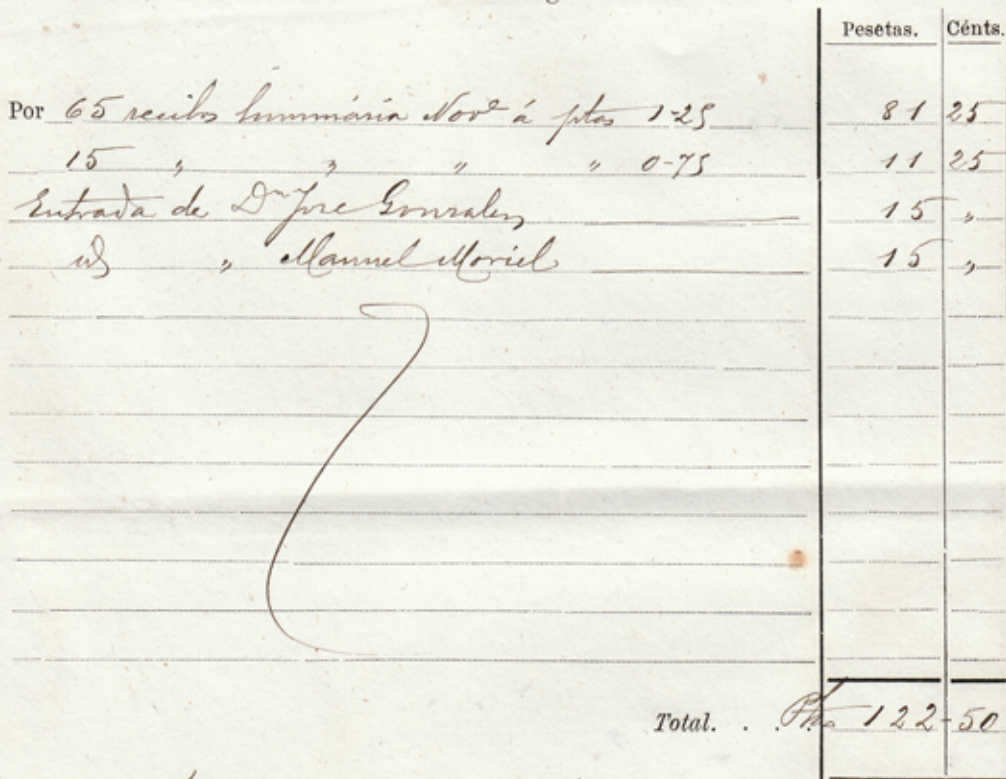 Pesetas. Cénts.
Por 65 recibos luminária Novᵉ á ptas 1-25 81 25
15 „ „ „ „ 0-75 11 25
Entrada de Dⁿ Jose Gonzalez 15 „
id „ Manuel Moriel 15 „
Total. . . Ptas 122-50